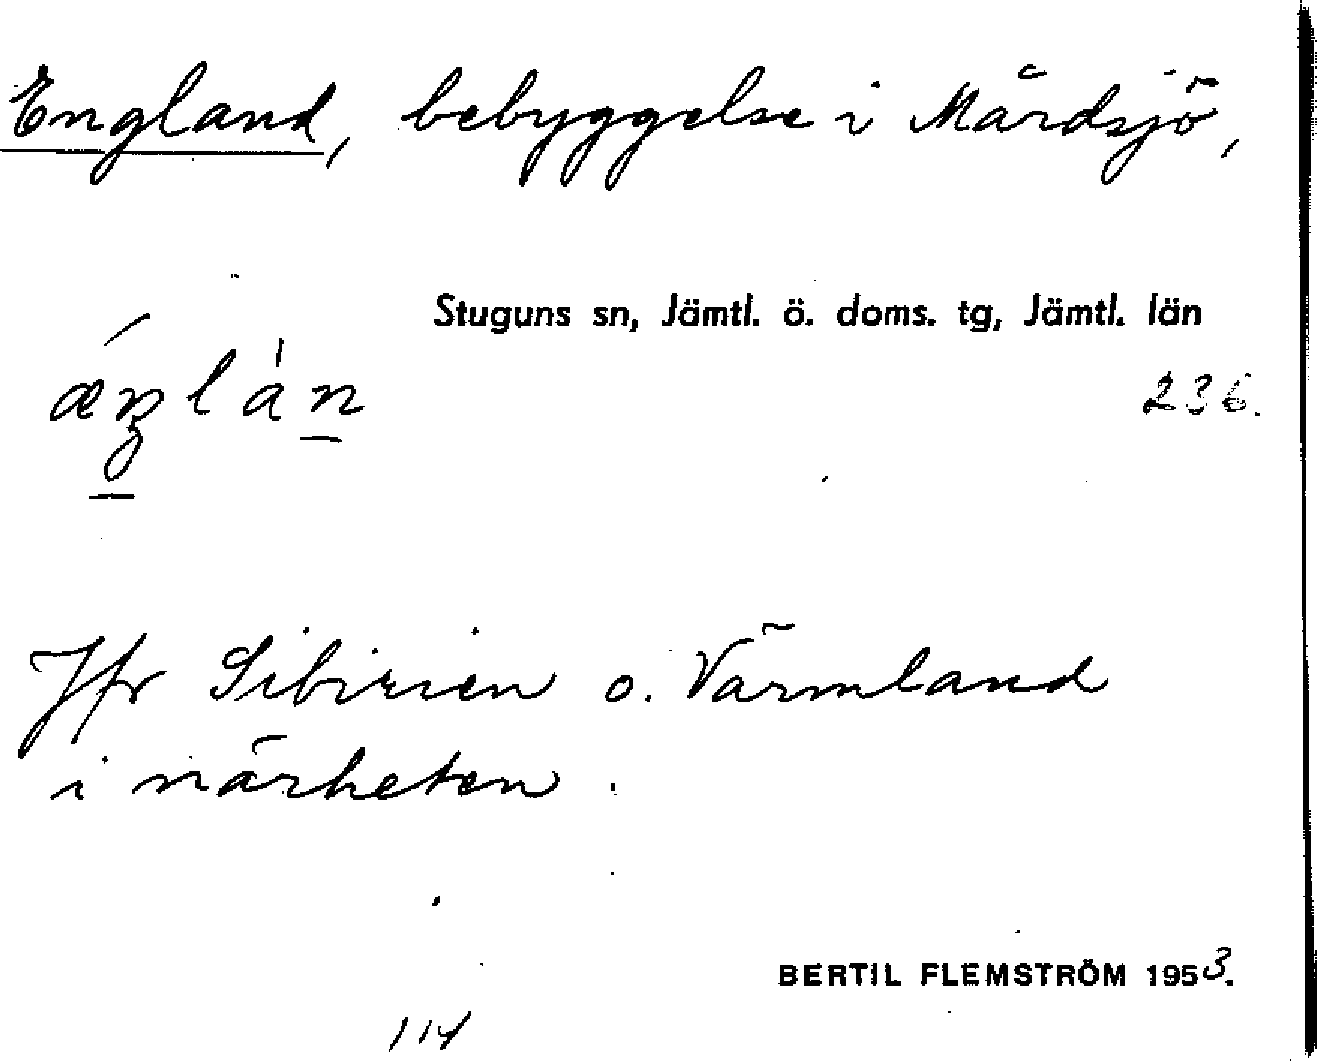 England, bebyggelse i Mårdsjö,
Stuguns sn, Jämtl. ö. doms. tg, Jämtl. län
236.
Jfr Sibirien o. Värmland
i närheten.
BERTIL FLEMSTRÖM 1953.
114